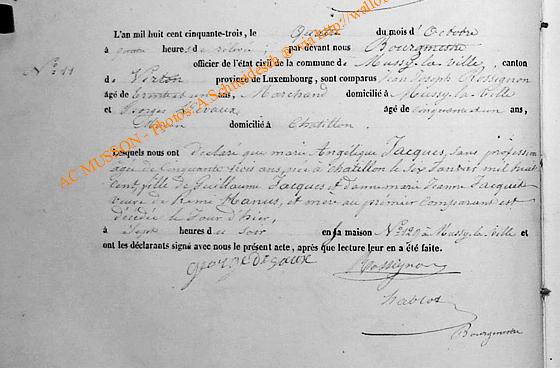 L'an mil huit cent cinquante-trois, le Quinze du mois d'Octobre
à onze heures de relevée, par devant nous Bourgmestre
officier de l'état civil de la commune de Mussy la Ville, canton
N° 11
de Virton province de Luxembourg, sont comparus Jean Joseph Rossignon
âgé de trente et un ans, Marchand domicilié à Mussy la Ville
et Georges Devaux âgé de cinquante un ans,
domicilié à Chatillon.
Lesquels nous ont déclaré que marie Angélique Jacques, sans profession
âgée de Cinquante trois ans, née à Chatillon le Six Janvier mil huit
Cent, fille de Guillaume Jacques et d'anne marie Jeanne Jacques
veuve de Remi Hanus, et mère au premier Comparant est
décédée le Jour d'hier,
à Sept heures du soir en sa maison N° 120 à Mussy la Ville et
ont les déclarants signé avec nous le présent acte, après que lecture leur en a été faite.
george devaux Rossignon
Bourgmestre
AC MUSSON - Photos: A. Schmidtesch